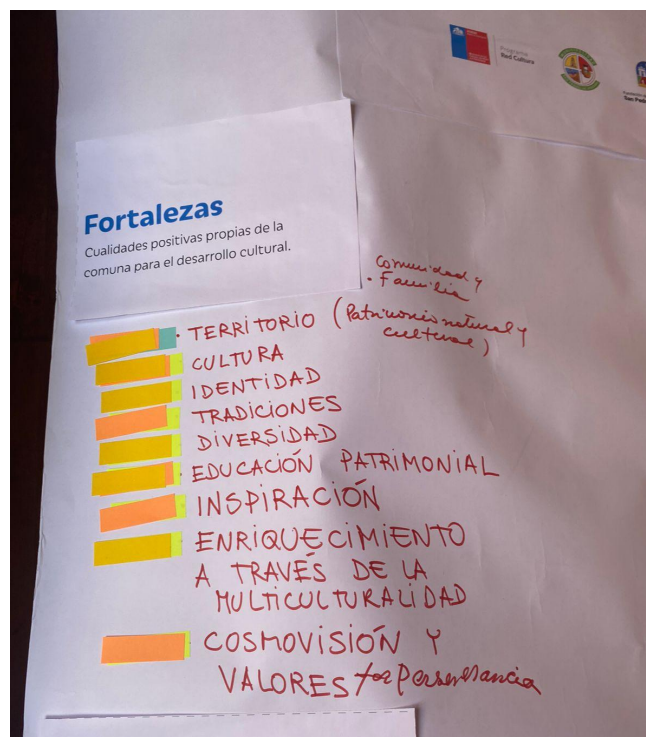 Programa
Red Cultura
San Pedro
Fortalezas
Cualidades positivas propias de la
comuna para el desarrollo cultural.
Comunidad y
· Familia
· TERRITORIO (Patrimonio natural y
cultural)
· CULTURA
· IDENTIDAD
· TRADICIONES
· DIVERSIDAD
· EDUCACIÓN PATRIMONIAL
· INSPIRACIÓN
· ENRIQUECIMIENTO
A TRAVÉS DE LA
MULTICULTURALIDAD
· COSMOVISIÓN Y
VALORES / Perseverancia